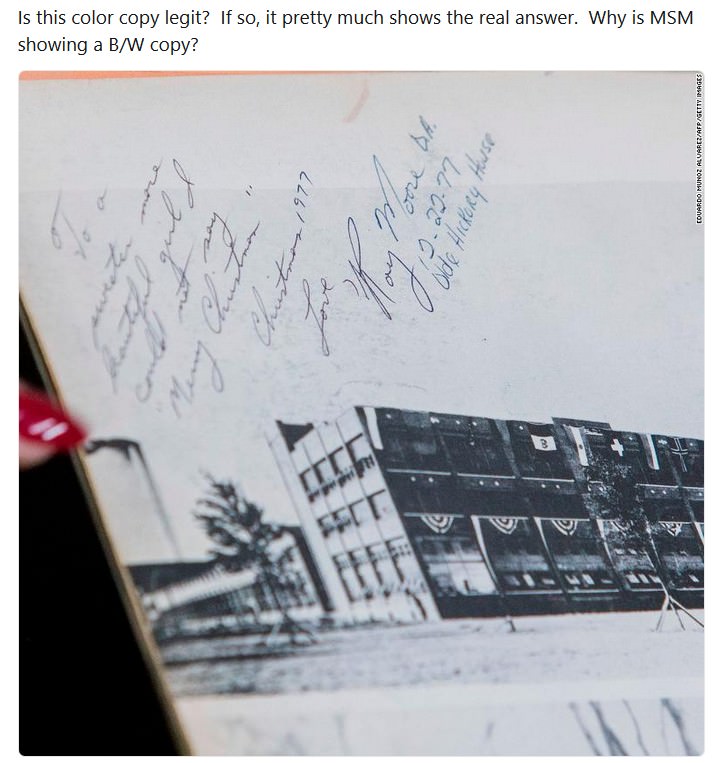 Is this color copy legit?  If so, it pretty much shows the real answer.  Why is MSM
showing a B/W copy?
EDUARDO MUNOZ ALVAREZ/AFP/GETTY IMAGES
To a
sweeter more
beautiful girl I
could not say
"Merry Christmas"
Christmas 1977
Love
Roy Moore D.A.
12-22-77
Olde Hickory House